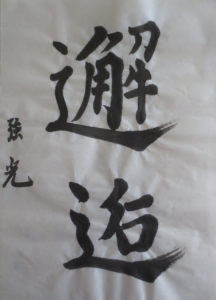 邂逅
強光